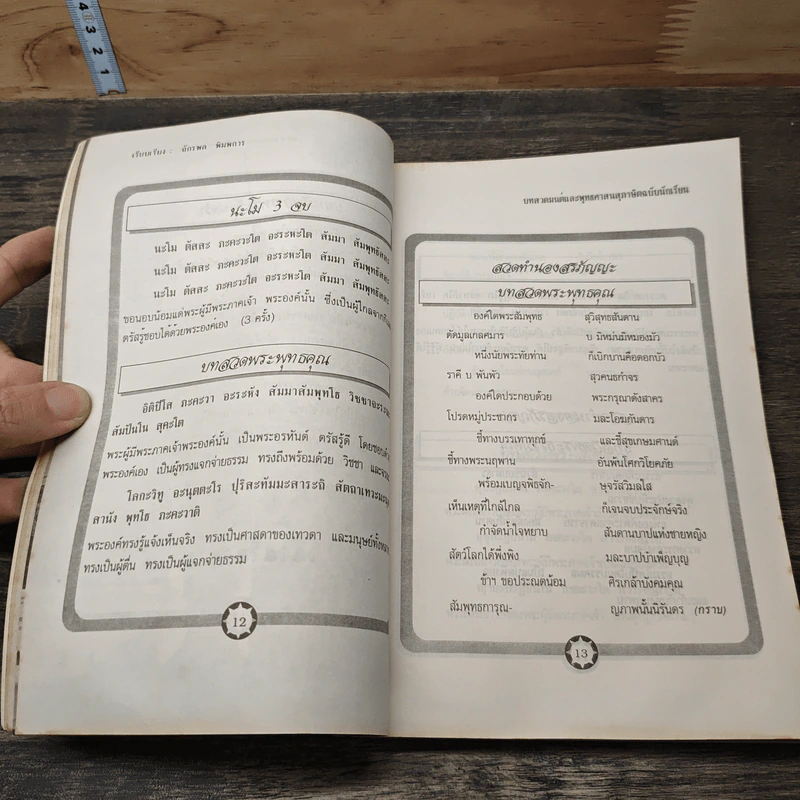 เรียบเรียง : อักรพล พิมพการ
นะโม 3 จบ
นะโม ตัสสะ ภะคะวะโต อะระหะโต สัมมา สัมพุทธัสสะ
นะโม ตัสสะ ภะคะวะโต อะระหะโต สัมมา สัมพุทธัสสะ
นะโม ตัสสะ ภะคะวะโต อะระหะโต สัมมา สัมพุทธัสสะ
ขอนอบน้อมแด่พระผู้มีพระภาคเจ้า พระองค์นั้น ซึ่งเป็นผู้ไกลจาก
ตรัสรู้ชอบได้ด้วยพระองค์เอง (3 ครั้ง)
บทสวดพระพุทธคุณ
อิติปิโส ภะคะวา อะระหัง สัมมาสัมพุทโธ วิชชาจะระ
สัมปันโน สุคะโต
พระผู้มีพระภาคเจ้าพระองค์นั้น เป็นพระอรหันต์ ตรัสรู้ดี โดยชอบด้วย
พระองค์เอง เป็นผู้ทรงแจกจ่ายธรรม ทรงถึงพร้อมด้วย วิชชา และ
โลกะวิทู อะนุตตะโร ปุริสะทัมมะสาระถิ สัตถาเทวะมะนุส
สานัง พุทโธ ภะคะวาติ
พระองค์ทรงรู้แจ้งเห็นจริง ทรงเป็นศาสดาของเทวดา และมนุษย์ทั้ง
ทรงเป็นผู้ตื่น ทรงเป็นผู้แจกจ่ายธรรม
12
บทสวดมนต์และพุทธศาสนสุภาษิตฉบับนักเรียน
สวดทำนองสรภัญญะ
บทสวดพระพุทธคุณ
องค์ใดพระสัมพุทธ สุวิสุทธสันดาน
ตัดมูลเกลศมาร บ มิหม่นมิหมองมัว
หนึ่งนัยพระทัยท่าน ก็เบิกบานคือดอกบัว
ราคี บ พันพัว สุวคนธกำจร
องค์ใดประกอบด้วย พระกรุณาดังสาคร
โปรดหมู่ประชากร มละโอฆกันดาร
ชี้ทางบรรเทาทุกข์ และชี้สุขเกษมศานต์
ชี้ทางพระนฤพาน อันพ้นโศกวิโยคภัย
พร้อมเบญจพิธจัก- ษุจรัสวิมลใส
เห็นเหตุที่ใกล้ไกล ก็เจนจบประจักษ์จริง
กำจัดน้ำใจหยาบ สันดานบาปแห่งชายหญิง
สัตว์โลกได้พึ่งพิง มละบาปบำเพ็ญบุญ
ข้าฯ ขอประณตน้อม ศิรเกล้าบังคมคุณ
สัมพุทธการุณ- ญภาพนั้นนิรันดร (กราบ)
13
4
3
2
1